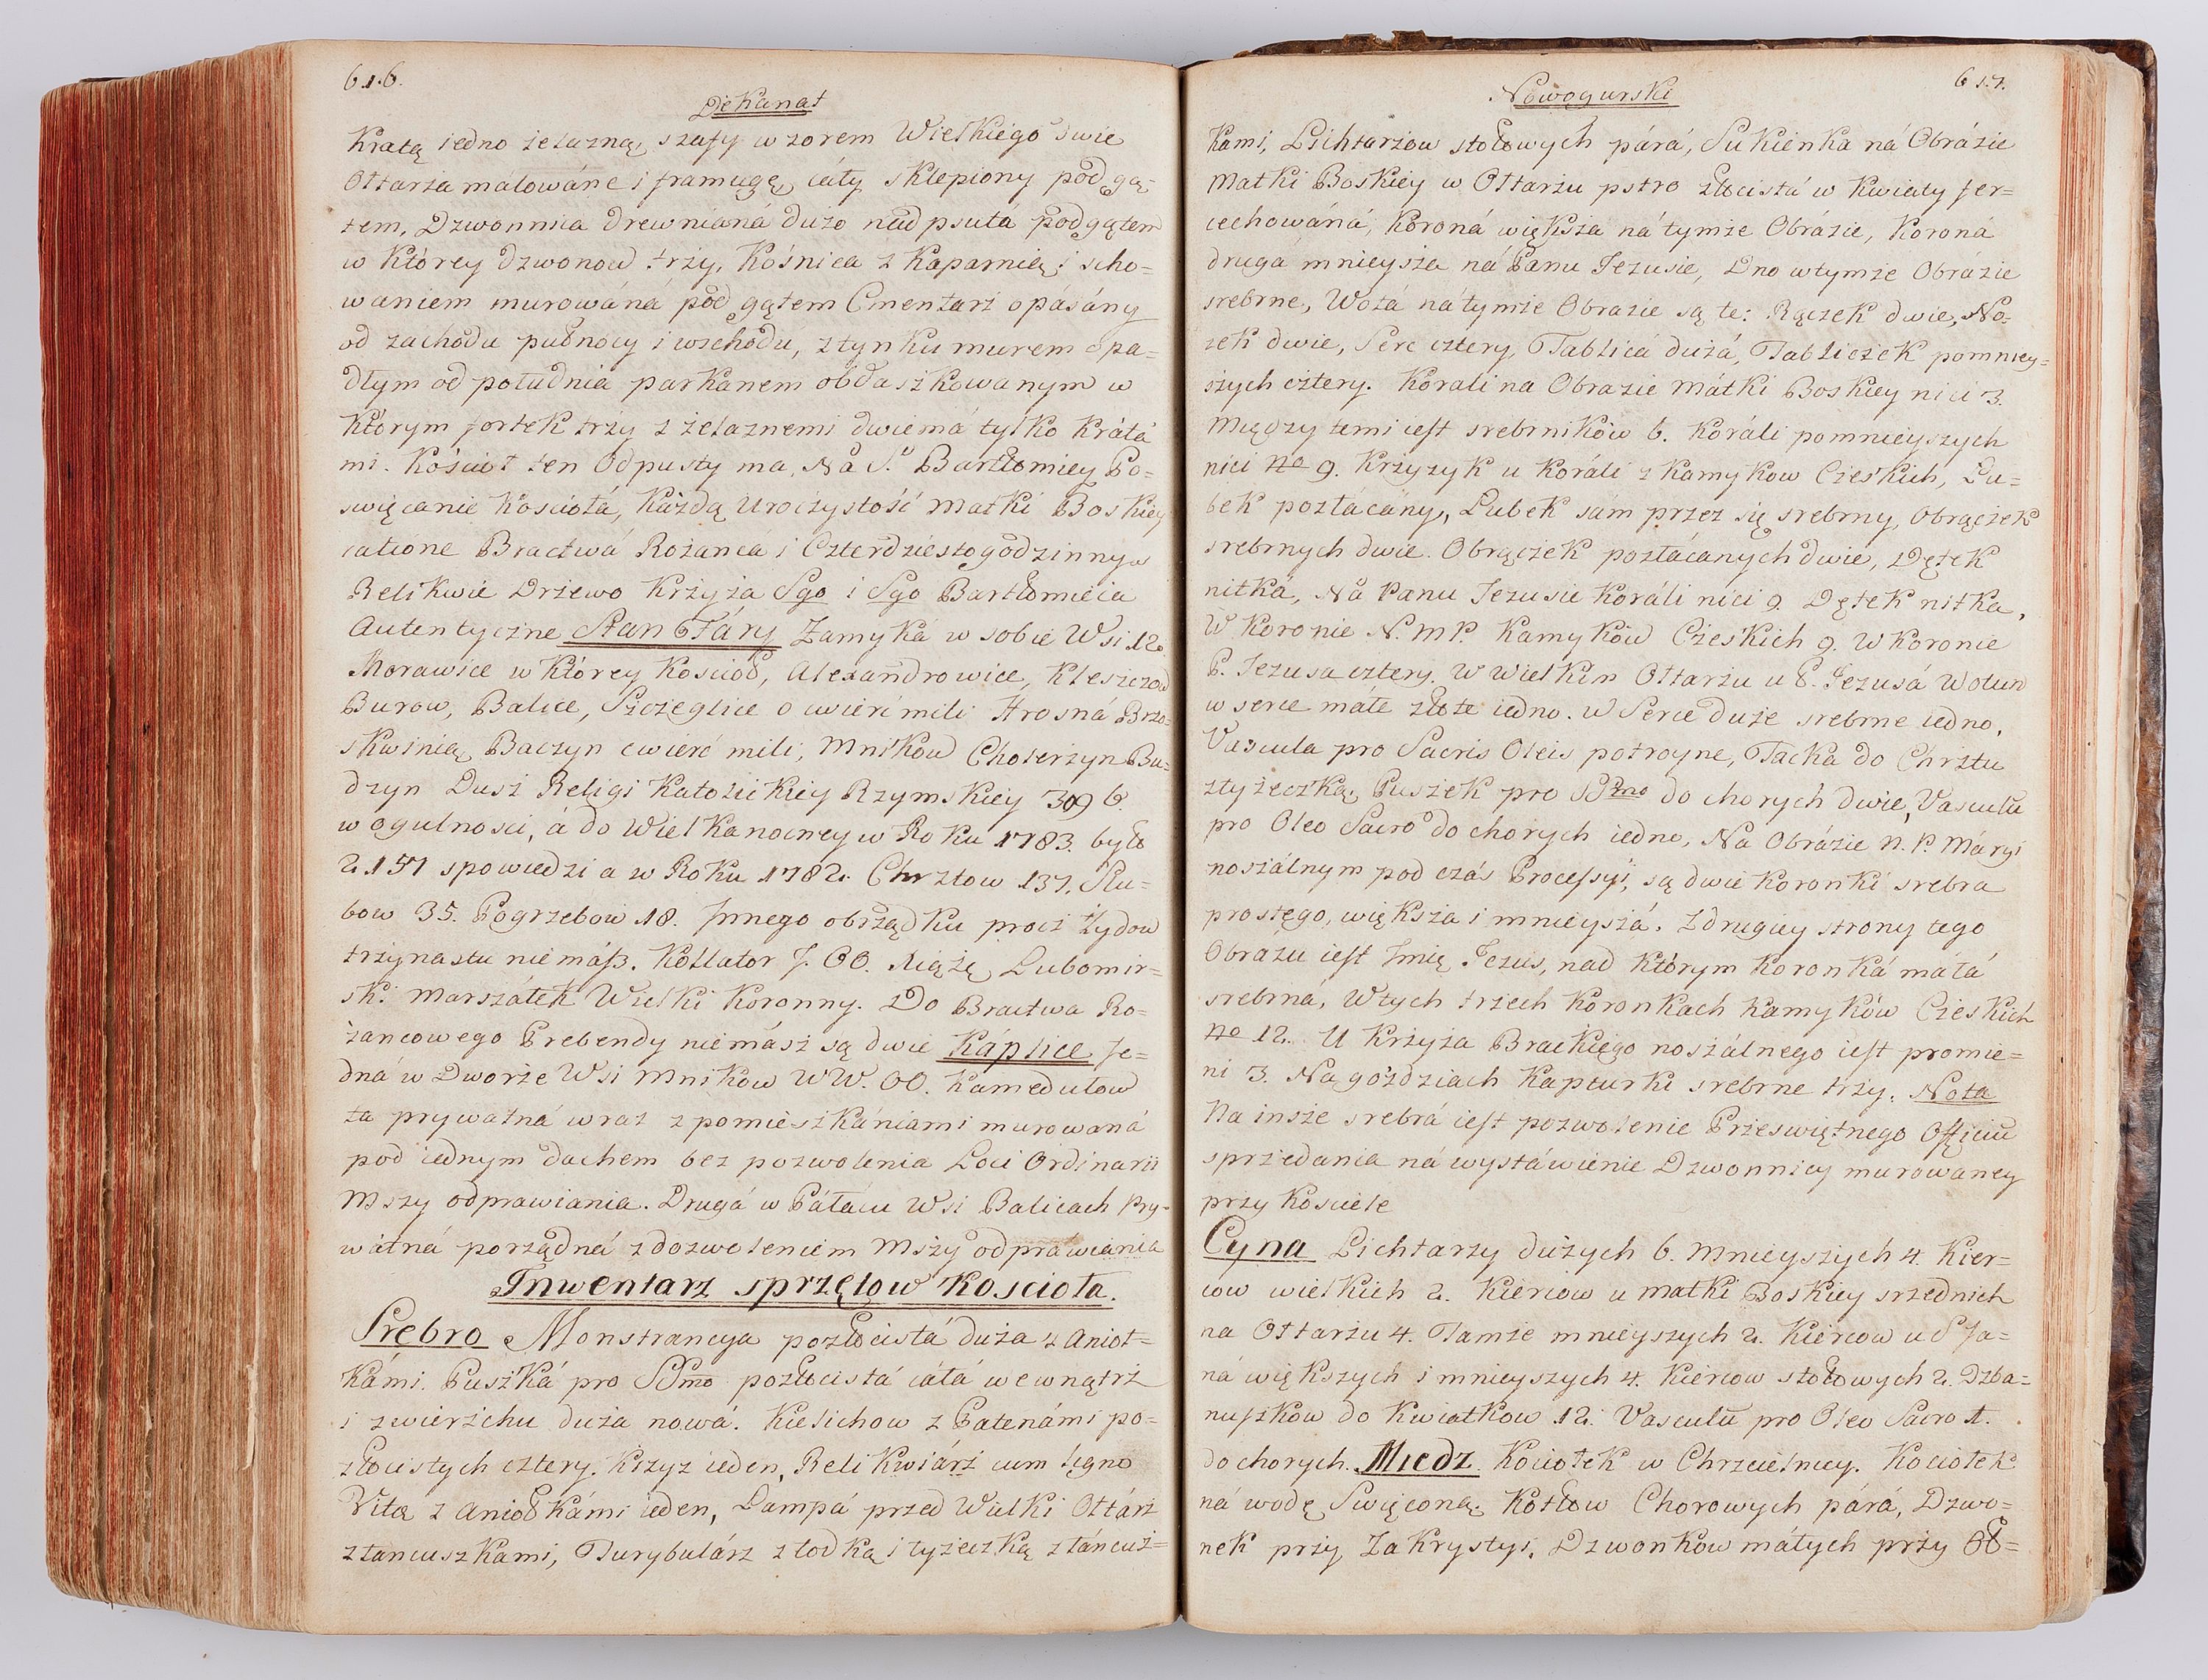 616.
Dekanat
Kratą iedno żelazną, szafy wzorem Wielkiego dwie
Ołtarza malowáne i framugę, cáły sklepiony pod gą-
tem, Dzwonnica drewnianá dużo nadpsutá pod gątem
w którey dzwonow trzy, Kośnica z Kaparnią i scho-
waniem murowáná pod gątem Cmentarz opásány
od zachodu pułnocy i wschodu, z tynku murem opa-
dłym od południa parkanem obdaszkowanym w
którym fortek trzy z żelaznemi dwiemá tylko kráta
mi. Kościoł ten Odpusty ma, Na S. Bartłomiey Po-
święcanie Kościołá, Każdą Uroczystość Matki Boskiey
catione Bractwá Rożanca i Czterdziestogodzinny
Relikwie Drzewo Krzyża Sgo i Sgo Bartłomieia
Autentyczne Stan Fáry Zamyká w sobie Wsi 12.
Morawice w którey Kościoł, Alexandrowice, Kleszczow
Burow, Balice, Szczeglice o cwierć mili Hrosná Brzo-
skwinią, Baczyn cwierć mili, Mnikow Cholerzyn Bu-
dzyn Dusz Religi Katolickiey Rzymskiey 3096.
w ogulności, á do Wielkanocney w Roku 1783. było
2157 spowiedzi a w Roku 1782. Chrztow 137. Slu-
bow 35. Pogrzebow 18. Innego obrządku procz Zydow
trzynastu niemász. Kollator J. OO. Xiążę Lubomir-
ski Marszáłek Wielki Koronny. Do Bractwa Ro-
żancowego Prebendy niemász są dwie Káplice Je-
dná w Dworze Wsi Mnikow WW. OO. Kamedułow
ta prywatná wraz z pomieszkániami murowaná
pod iednym dachem bez pozwolenia Loci Ordinarii
Mszy odprawiania. Drugá w Páłacu Wsi Balicach Pry-
watná porządná z dozwoleniem Mszy odprawiania
Inwentarz sprzętow Kościoła.
Srebro Monstrancya pozłocistá duża z Anioł-
kámi. Puszká pro SSmo pozłocistá cáłá wewnątrz
i zwierzchu duża nowá. Kielichow z Patenámi po-
złocistych cztery. Krzyz ieden, Relikwiárz cum Ligno
Vitæ z Aniołkámi ieden, Lampá przed Wielki Ołtárz
z łancuszkami, Turybulárz z łodką i łyżeczką z łáncusz-
617.
Nowogurski
kami, Lichtarzow stołowych párá, Sukienka ná Obrázie
Matki Boskiey w Ołtarzu pstro złocistá w kwiaty fer-
cechowáná, Koroná większa ná tymże Obrázie, Koroná
druga mnieysza ná Panu Jezusie, Dno w tymże Obrázie
srebrne, Wotá ná tymże Obrazie są te: Rączek dwie, No-
zek dwie, Serc cztery, Tablicá dużá, Tabliczek pomniey-
szych cztery. Korali na Obrazie Mátki Boskiey nici 3.
Między temi iest srebrników 6. Koráli pomnieyszych
nici No 9. Krzyzyk u Koráli z Kamykow Czeskich, Lu-
bek pozłácány, Lubek sám przez się srebrny, Obrączek
srebrnych dwie. Obrączek pozłácanych dwie, Dętek
nitká, Ná Panu Jezusie Koráli nici 9. Dętek nitka,
W Koronie N. M P. Kamykow Czeskich 9. W Koronie
P. Jezusa cztery. W Wielkim Ołtarzu u P. Jezusá Wotum
w serce máłe złote iedno. W Serce duże srebrne iedno,
Vascula pro Sacris Oleis potroyne, Tacka do Chrztu
z łyżeczką, Puszek pro SSmo do chorych dwie, Vasculū
pro Oleo Sacro do chorych iedno, Na Obrázie N. P. Máryi
noszálnym pod czás Processyi, są dwie koronki srebra
prostego, większa i mnieyszá. Z drugiey strony tego
Obrázu iest Imię Jezus, nad którym koronká máłá
srebrná, W tych trzech koronkách kamyków Czeskich
No 12. U Krzyża Brackiego noszálnego iest promie-
ni 3. Na gozdziach kapturki srebrne trzy. Nota
Na insze srebrá iest pozwolenie Przeświętnego Officiū
sprzedania ná wystáwienie Dzwonnicy murowaney
przy Kościele
Cyna Lichtarzy dużych 6. Mnieyszych 4. Kier-
cow wielkich 2. Kiercow u Matki Boskiey srzednich
na Ołtarzu 4. Tamże mnieyszych 2. Kiercow u S Ja-
ná większych i mnieyszych 4. Kiercow stołowych 2. Dzba-
nuszkow do kwiatkow 12. Vasculū pro Oleo Sacro 1.
do chorych. Miedz Kociołek w Chrzcielnicy. Kociołek
ná wodę Święconą. Kotłow Chorowych párá, Dzwo-
nek przy Zakrystyi, Dzwonkow máłych przy Oł-